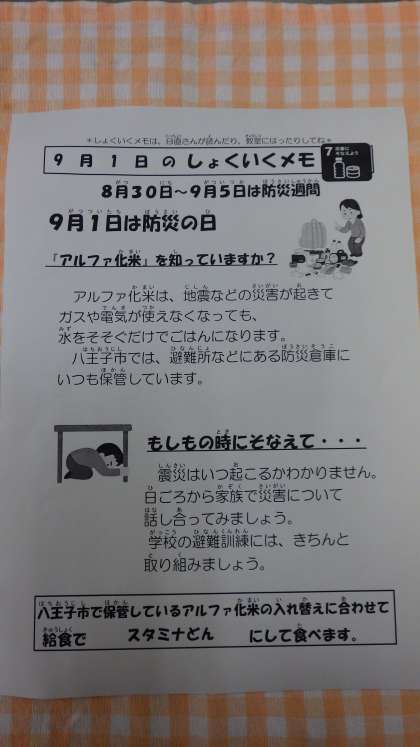 ＊しょくいくメモは、日直さんが読んだり、教室にはったりしてね＊
９月１日のしょくいくメモ
7 災害にそなえよう
８月３０日～９月５日は防災週間
９月１日は防災の日
「アルファ化米」を知っていますか？
アルファ化米は、地震などの災害が起きて
ガスや電気が使えなくなっても、
水をそそぐだけでごはんになります。
八王子市では、避難所などにある防災倉庫に
いつも保管しています。
もしもの時にそなえて・・・
震災はいつ起こるかわかりません。
日ごろから家族で災害について
話し合ってみましょう。
学校の避難訓練には、きちんと
取り組みましょう。
八王子市で保管しているアルファ化米の入れ替えに合わせて
給食で　スタミナどん　にして食べます。